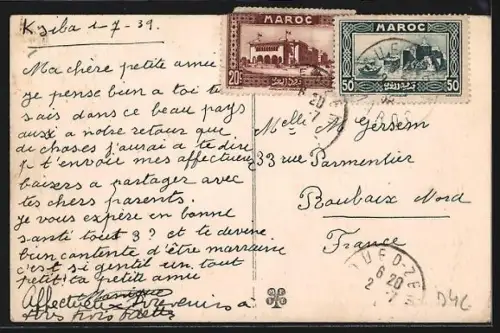 Ksiba 1-7-39.
Ma chère petite amie
je pense bien a toi tu
sais dans ce beau pays
aussi a notre retour que
de choses j'aurai a te dire
je t'envoie mes affectueux
baisers a partager avec
tes chers parents.
je vous expère en bonne
santé tout 3? et te devine
bien contente d'être marraine
c'est si gentil un tout
petit. ta petite amie
Affectueux souvenirs a
MAROC
20c
MAROC
50 50
OUED-ZEM
20
7
Melle M Gersem
33 rue Parmentier
Roubaix Nord
France
OUED-ZEM
6 20
2 7
D46